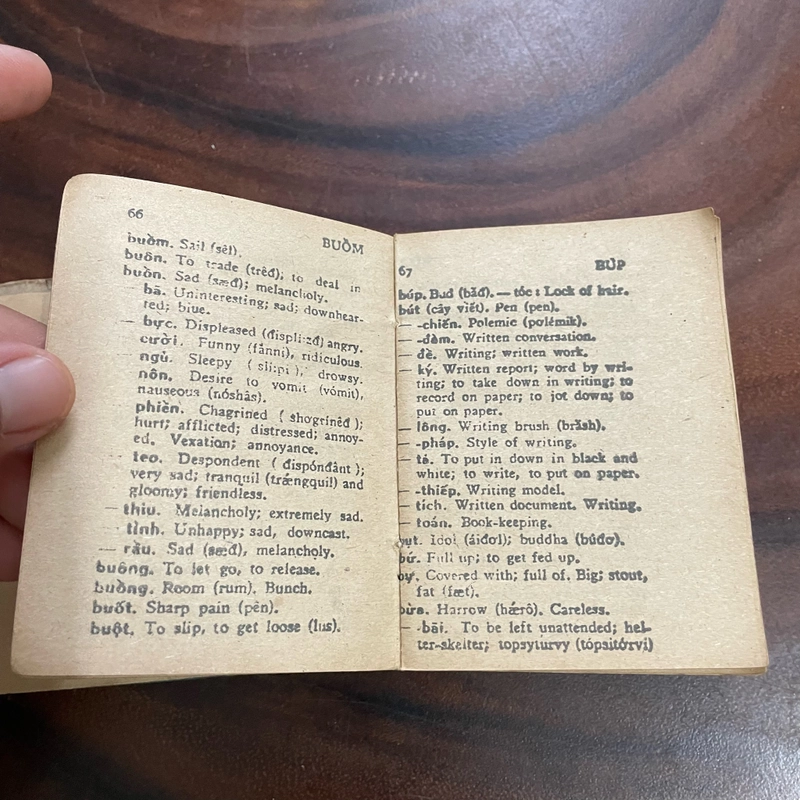 66
BUỒM
buồm. Sail (sêl).
buôn. To trade (trêđ); to deal in
buồn. Sad (sæđ); melancholy.
— bã. Uninteresting; sad; downhear-
ted; blue.
— bực. Displeased (đispli:zđ) angry.
— cười. Funny (fânni), ridiculous.
— ngủ. Sleepy (sli:pi), drowsy.
— nôn. Desire to vomit (vómit),
nauseous (nóshâs).
— phiền. Chagrined (shơgrinêđ);
hurt; afflicted; distressed; annoy-
ed. Vexation; annoyance.
— teo. Despondent (đispónđânt);
very sad; tranquil (trǽngquil) and
gloomy; friendless.
— thiu. Melancholy; extremely sad.
— tình. Unhappy; sad, downcast.
— rầu. Sad (sæđ), melancholy.
buông. To let go, to release.
buồng. Room (rum). Bunch.
buốt. Sharp pain (pên).
buột. To slip, to get loose (lus).
67
BÚP
búp. Bud (băđ). — tóc : Lock of hair.
bút (cây viết). Pen (pen).
— -chiến. Polemic (pơlémik).
— -đàm. Written conversation.
— đề. Writing; written work.
— ký. Written report; word by wri-
ting; to take down in writing; to
record on paper; to jot down; to
put on paper.
— lông. Writing brush (brăsh).
— -pháp. Style of writing.
— tả. To put in down in black and
white; to write, to put on paper.
— -thiếp. Writing model.
— tích. Written document. Writing.
— toán. Book-keeping.
bụt. Idol (áiđơl); buddha (búđơ).
bứ. Full up; to get fed up.
bự. Covered with; full of. Big; stout,
fat (fæt).
bừa. Harrow (hǽrô). Careless.
— -bãi. To be left unattended; hel-
ter-skelter; topsyturvy (tópsitórvi)